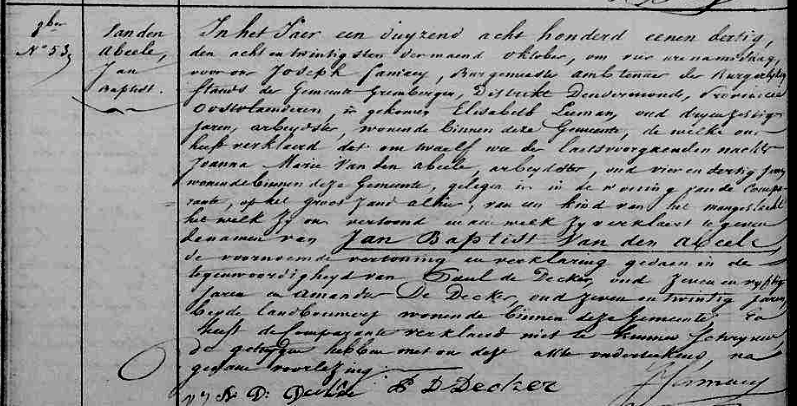 gber
N° 53,
Van den
Abeele,
Jan
Baptist.
In het Jaer een duyzend acht honderd eenen dertig,
den acht en twintigsten der maend Oktober, om vier uren namedag,
voor ons Joseph, Burgemeester ambtenaer der Burgerlyke
stands der Gemeente Grembergen, Distrikt Dendermonde, Provincie
Oostvlanderen, is gekomen Elisabeth Leeman, oud dryenzestig
jaren, arbeydster, wonende binnen deze Gemeente, de welke ons
heeft verklaerd dat om twaelf uren de laetsvoorgaenden nacht
Joanna Marie Van den Abeele, arbeydster, oud vier en dertig jaren
wonende binnen deze Gemeente, gelegen is in de wooning van de Compa-
rante, op het Groot Zand alhier, van een kind van het mangeslacht
het welk zy ons vertoond en aen welk zy verklaert te geven
de namen van Jan Baptist Van den Abeele
de voornoemde vertooning en verklaring gedaen in de
tegenwoordigheyd van Paul de Decker, oud zeven en vyftig
jaren en Amandus De Decker, oud zeven en twintig jaren
beyde landbouwers wonende binnen deze Gemeente En
heeft de Comparante verklaerd niet te konnen schryven
de getuygen hebben met ons deze akte onderteekend, na
gedane voorlezing.
P D Decker